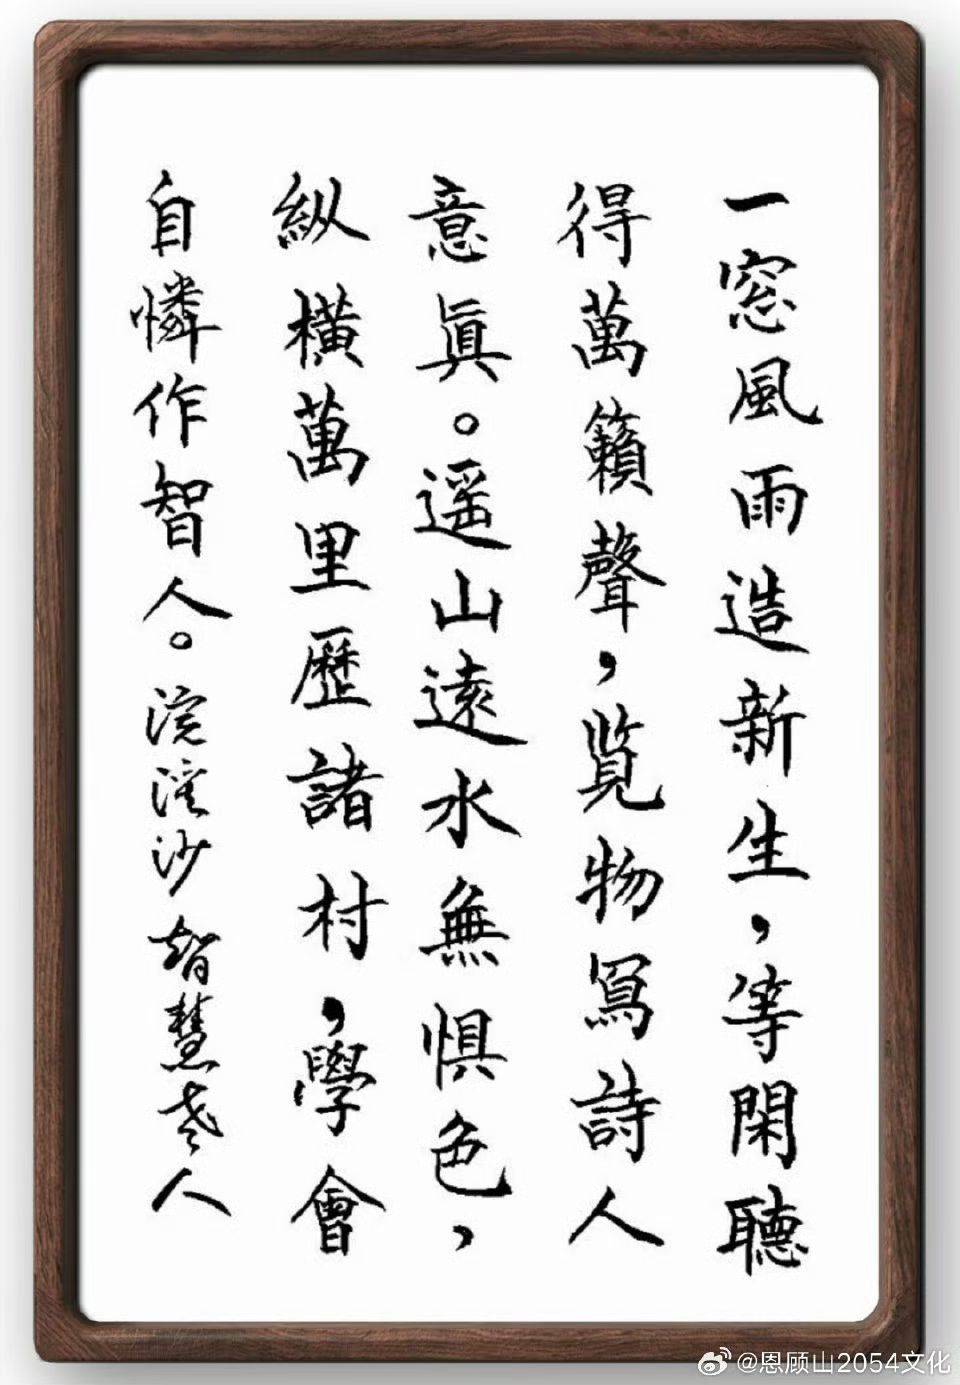 一窓風雨造新生，等閑聽
得萬籟聲，覧物寫詩人
意眞。遥山遠水無惧色，
紁橫萬里歷諸村，學會
自憐作智人。浣溪沙智慧老人
@恩顾山2054文化